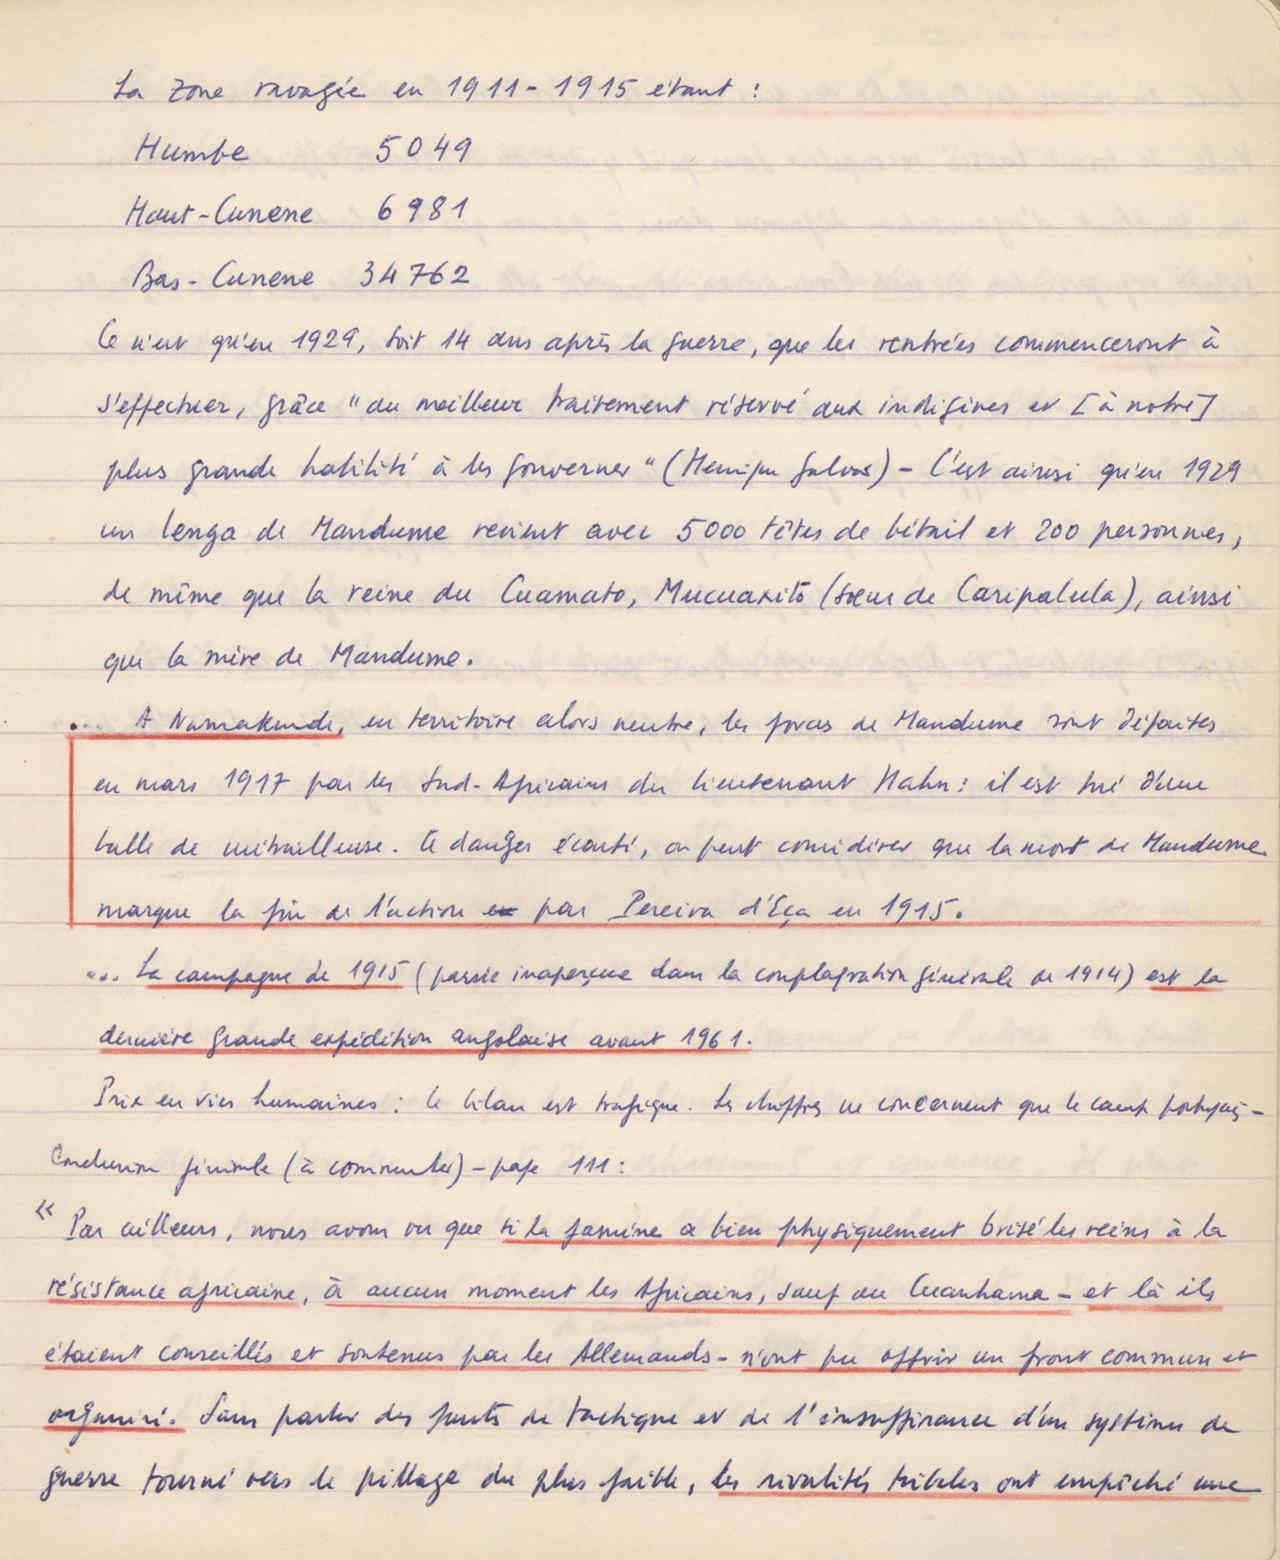 La zone ravagée en 1911-1915 étant :
Humbe 5049
Haut-Cunene 6981
Bas-Cunene 34762
Ce n'est qu'en 1929, soit 14 ans après la guerre, que les rentrées commenceront à
s'effectuer, grâce "au meilleur traitement réservé aux indigènes et [à notre]
plus grande habilité à les gouverner" (Henrique Galvão) - C'est ainsi qu'en 1929
un lenga de Mandume revient avec 5000 têtes de bétail et 200 personnes,
de même que la reine du Cuamato, Mucuaxitò (sœur de Caripalula), ainsi
que la mère de Mandume.
... A Namakunde, en territoire alors neutre, les forces de Mandume sont défaites
en mars 1917 par les Sud-Africains du lieutenant Hahn : il est tué d'une
balle de mitrailleuse. Ce danger écarté, on peut considérer que la mort de Mandume
marque la fin de l'action par Pereira d'Eça en 1915.
... La campagne de 1915 (passée inaperçue dans la conflagration générale de 1914) est la
dernière grande expédition angolaise avant 1961.
Prix en vies humaines : le bilan est tragique. Les chiffres ne concernent que le camp portugais -
Conclusion générale (à commenter) - page 111 :
« Par ailleurs, nous avons vu que si la famine a bien physiquement brisé les reins à la
résistance africaine, à aucun moment les Africains, sauf au Cuanhama - et là ils
étaient conseillés et soutenus par les Allemands - n'ont pu offrir un front commun et
organisé. Sans parler des fautes de tactique et de l'insuffisance d'un système de
guerre tourné vers le pillage du plus faible, les rivalités tribales ont empêché une